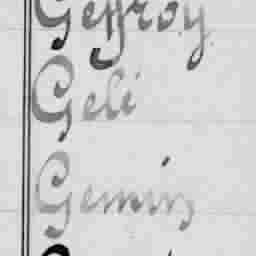 Geffroy
Geli
Gemin